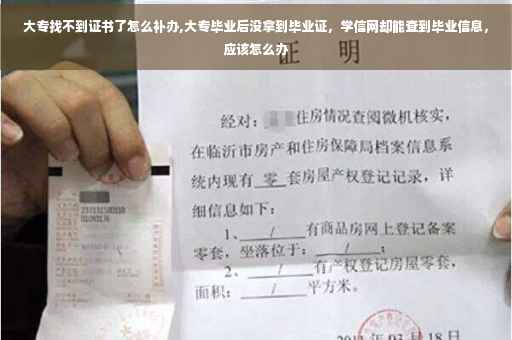 大专找不到证书了怎么补办,大专毕业后没拿到毕业证，学信网却能查到毕业信息，
应该怎么办
证 明
经对： 住房情况查阅微机核实，
在临沂市房产和住房保障局档案信息系
统内现有 零 套房屋产权登记记录，详
细信息如下：
1、 / 有商品房网上登记备案
零套，坐落位于： / ；
2、 / 有产权登记房屋零套，
面积： / 平方米。